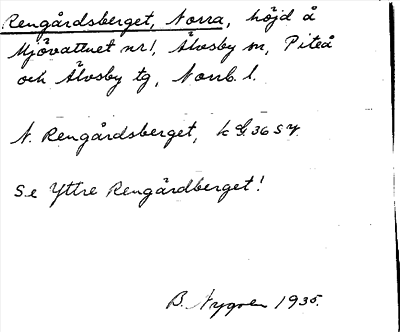 Rengårdsberget, Norra, höjd å
Mjövattnet nr 1, Älvsby sn, Piteå
och Älvsby tg, Norrb. l.
N. Rengårdsberget, k 36 SV.
Se Yttre Rengårdberget!
B. Nygren 1935.